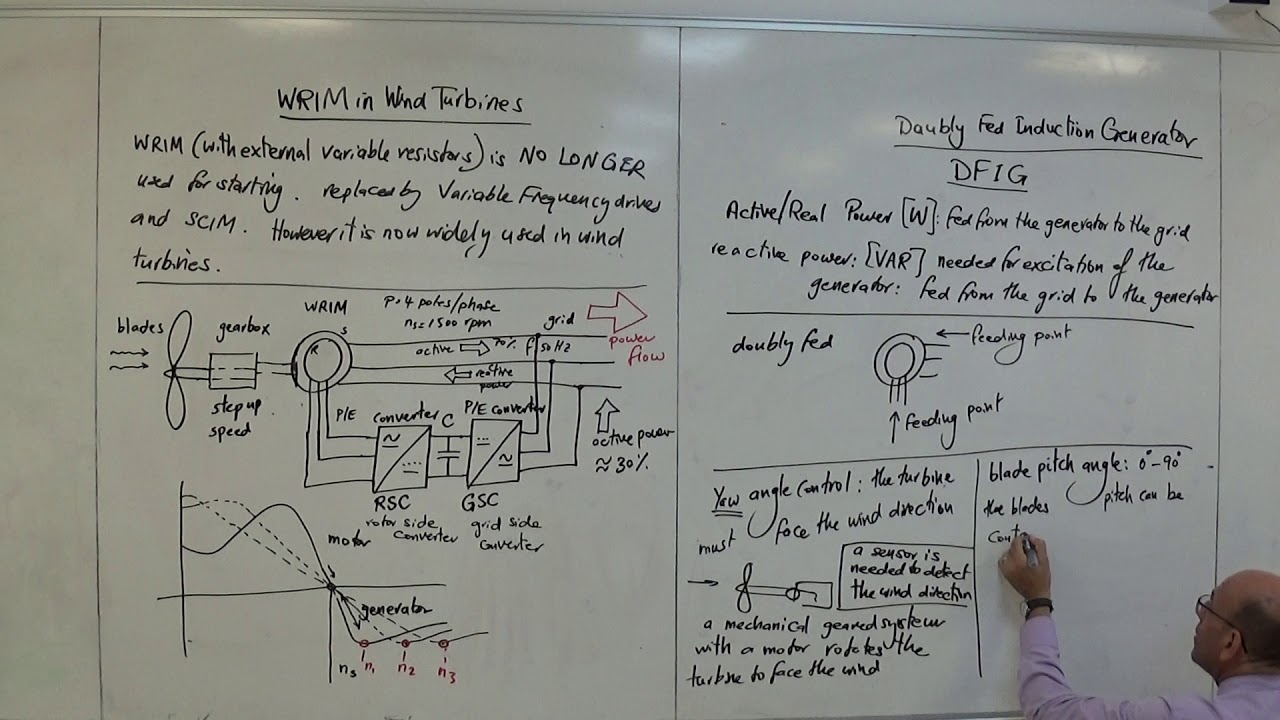 WRIM in Wind Turbines
WRIM (with external variable resistors) is NO LONGER
used for starting. replaced by Variable Frequency drives
and SCIM. However it is now widely used in wind
turbines.
WRIM
P=4 poles/phase
ns=1500 rpm
grid
blades
gearbox
S
R
active
70%
f
50HZ
power
flow
reactive
power
step up
speed
P/E converter
C
P/E converter
active power
≈30%
RSC
rotor side
converter
GSC
grid side
converter
motor
generator
ns
n1
n2
n3
Doubly Fed Induction Generator
DFIG
Active/Real Power [W]: fed from the generator to the grid
reactive power: [VAR] needed for excitation of the
generator: fed from the grid to the generator
doubly fed
feeding point
feeding point
Yaw angle control: the turbine
must face the wind direction
a sensor is
needed to detect
the wind direction
a mechanical geared system
with a motor rotates the
turbine to face the wind
blade pitch angle: 0°-90°
the blades pitch can be
cont